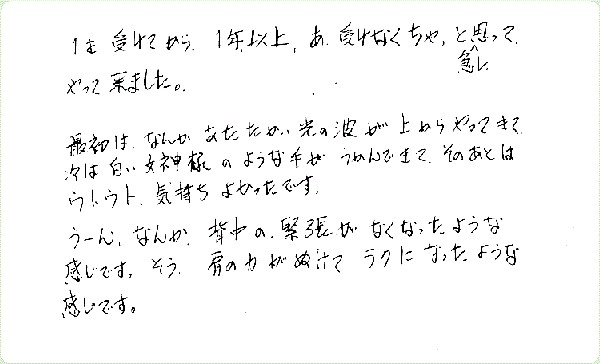 1を受けてから、1年以上、あ、受けなくちゃ、と急に思って、
やって来ました。
最初は、なんか、あたたかい光の波が上からやってきて、
次は白い女神様のような手がうかんできて、そのあとは
ウトウト、気持ちよかったです。
うーん、なんか、背中の緊張がなくなったような
感じです。そう、肩の力がぬけてラクになったような
感じです。